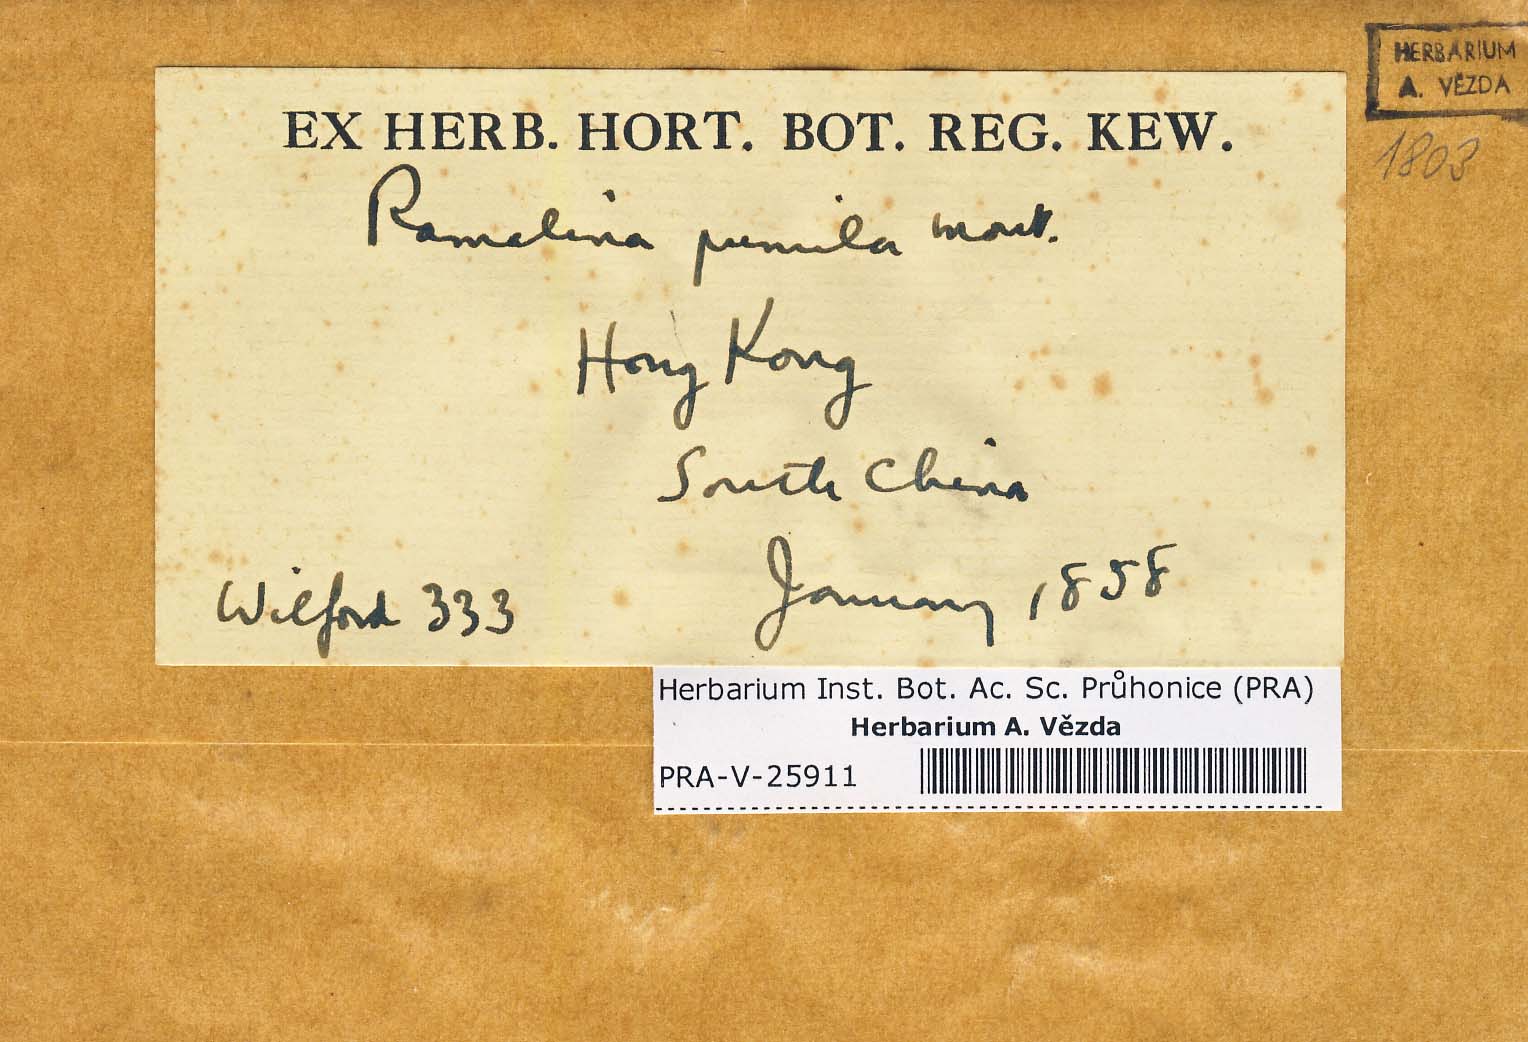 HERBARIUM
A. VĚZDA
1803
EX HERB. HORT. BOT. REG. KEW.
Ramalina pumila Mont.
Hong Kong
South China
January 1858
Wilford 333
Herbarium Inst. Bot. Ac. Sc. Průhonice (PRA)
Herbarium A. Vězda
PRA-V-25911